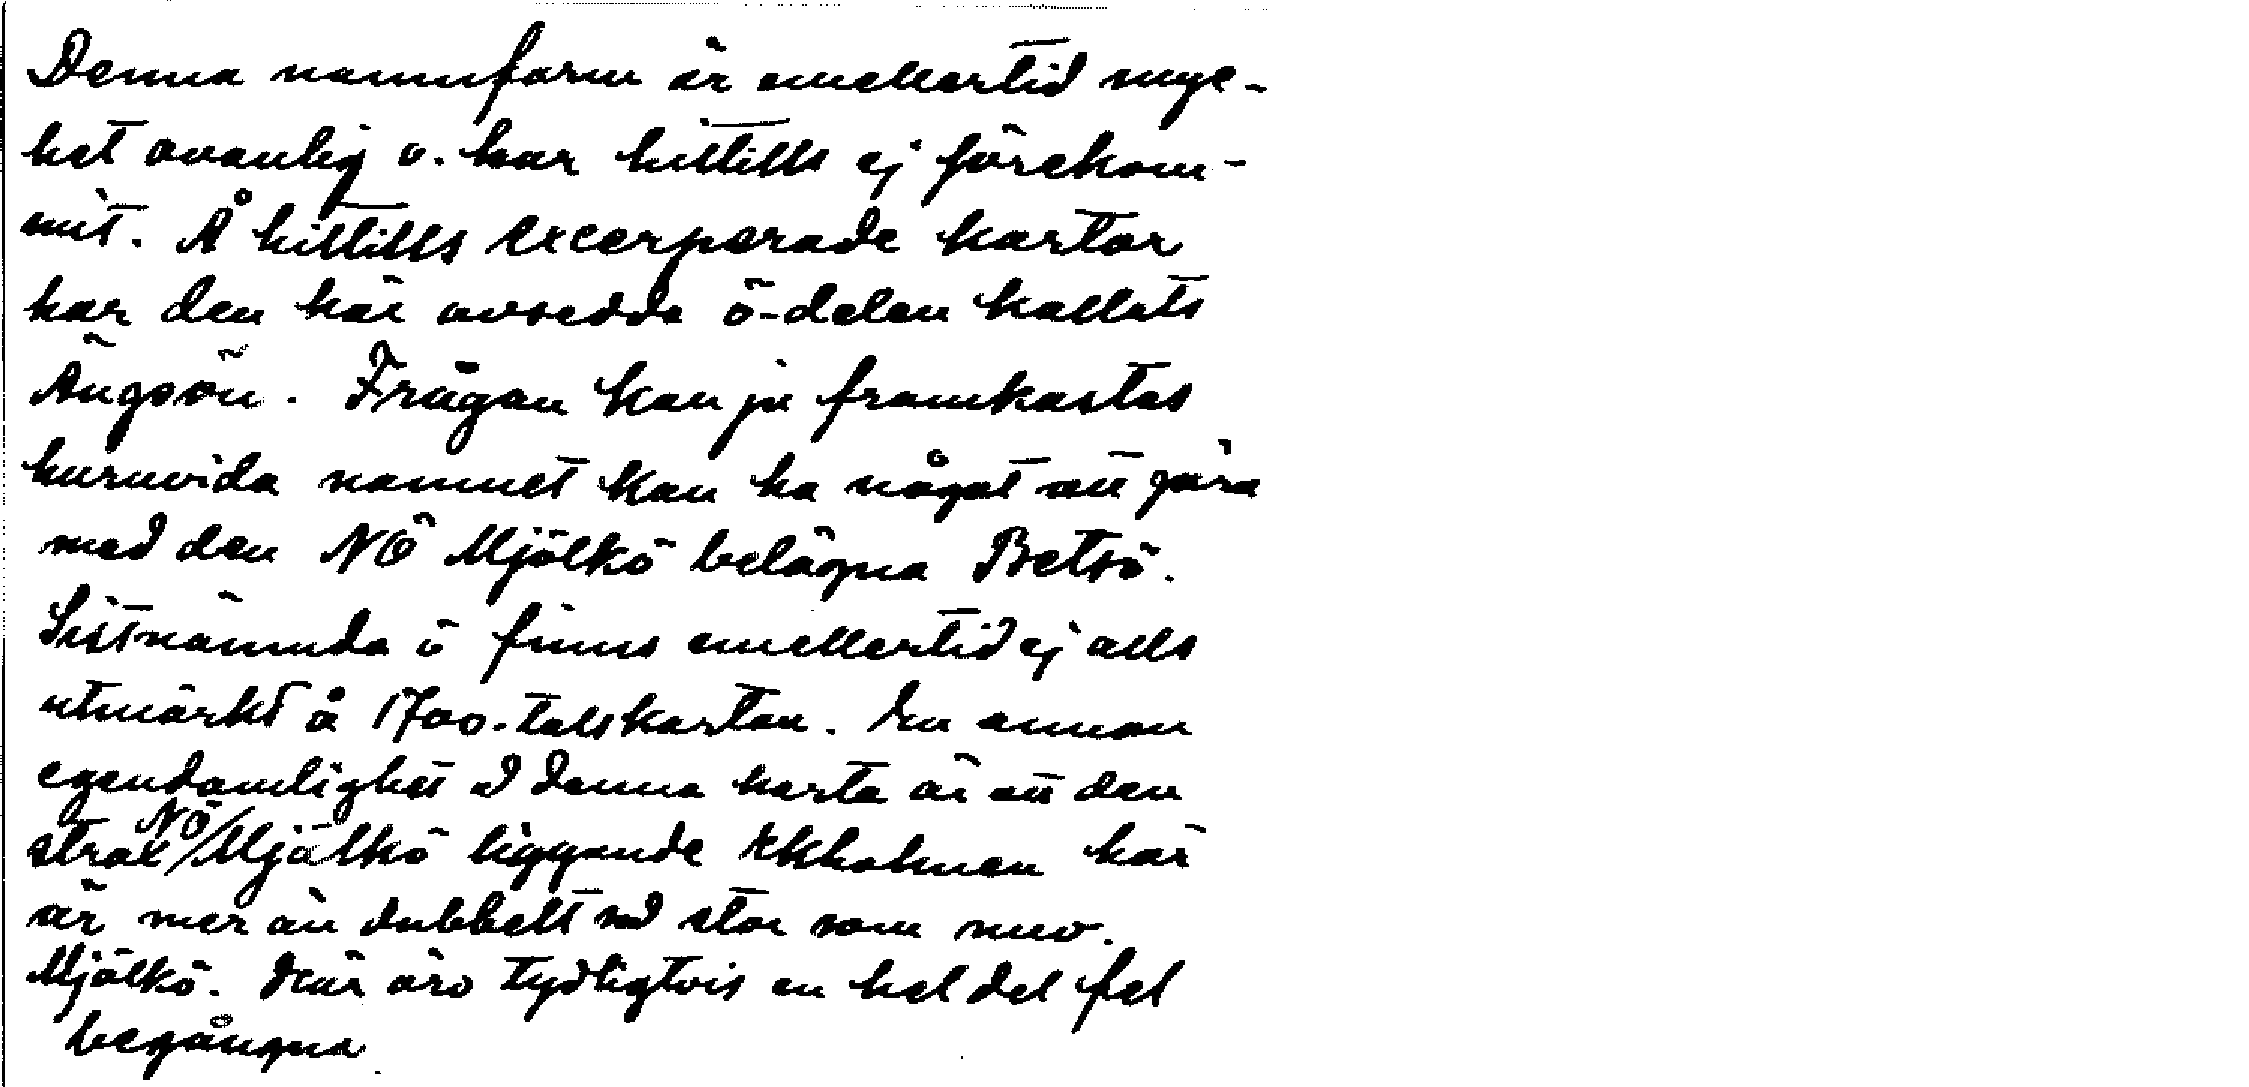 Denna namnform är emellertid myc-
ket ovanlig o. har hittills ej förekom-
mit. Å hittills excerperade kartor
har den här avsedda ö-delen kallats
Ängsön. Frågan kan ju framkastas
huruvida namnet kan ha något att göra
med den NÖ Mjölkö belägna Betsö.
Sistnämnda ö finns emellertid ej alls
utmärkt å 1700-talskartan. En annan
egendomlighet å denna karta är att den
strax NÖ Mjölkö liggande Ekholmen här
är mer än dubbelt så stor som nuv.
Mjölkö. Här äro tydligtvis en hel del fel
begångna